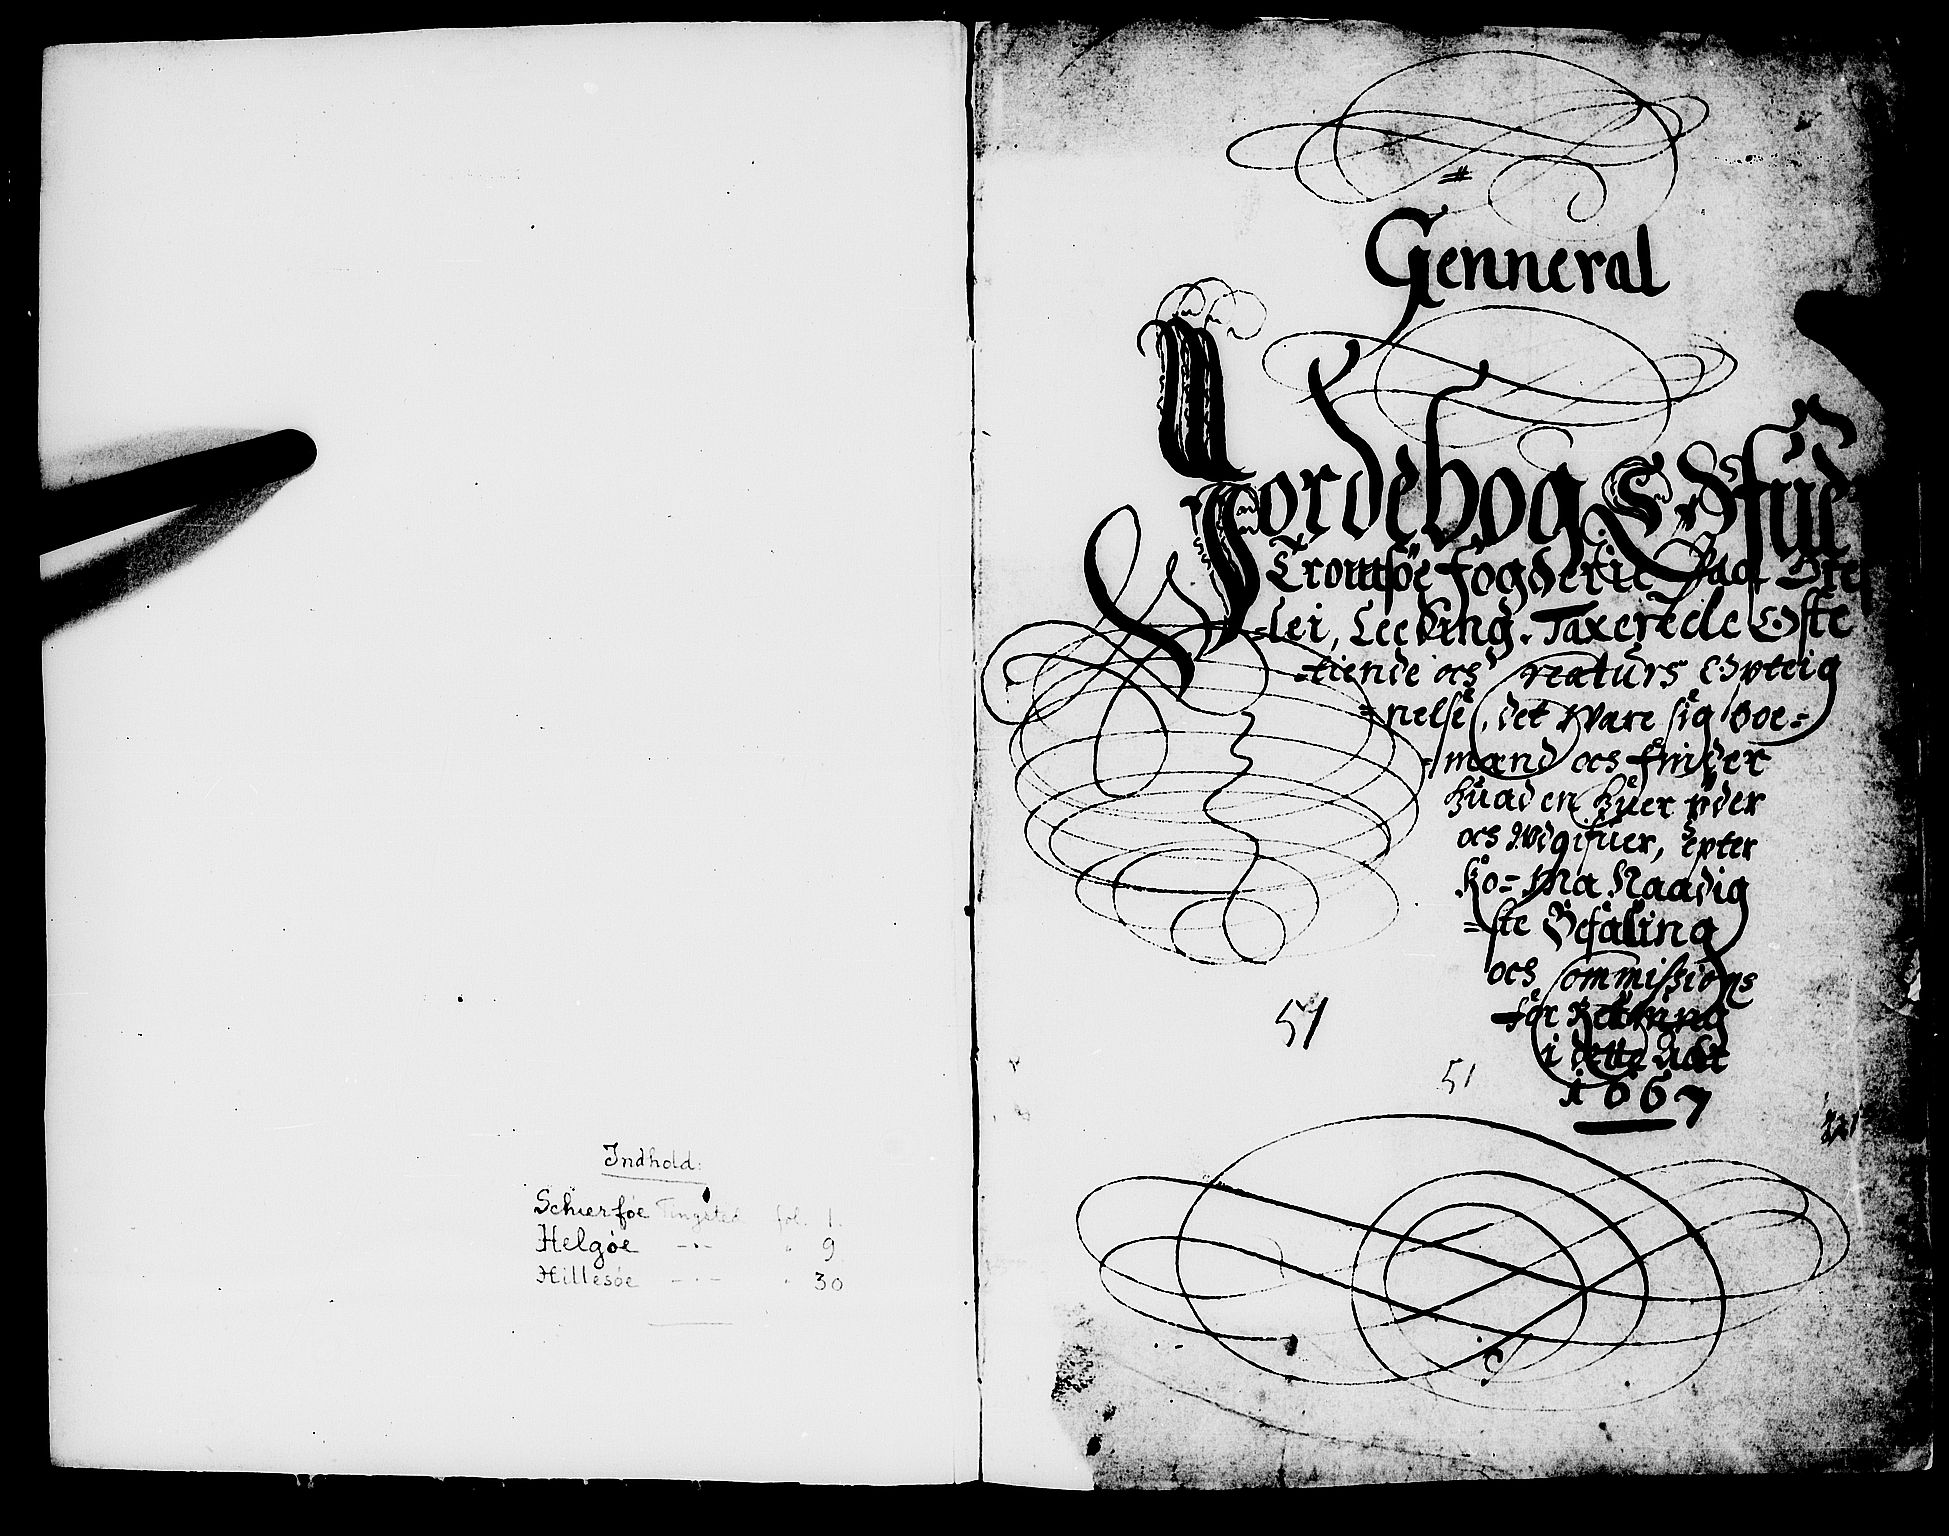 Indhold:
Schierføe Tingsted fol. 1.
Helgøe — " — " 9
Hillesøe — " — " 30
Genneral
Jordebog Offuer
Tromsøe fogderie
=lei, Leeding. Taxerede Ofte
=tiende och reaturs Opteig
=nelse, det Ware sig Boe=
=mænd och finder
huad en huer yder
och Wdgifuer, epter
Ko= Ma Naadig
=ste Befaling
och Commissions
for Retning
i dette Aar
1667
51
51